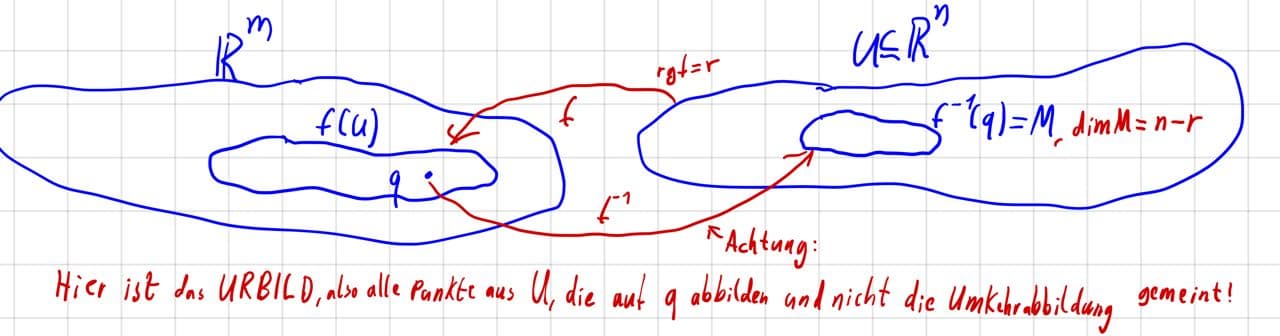 ℝᵐ
U⊆ℝⁿ
rgf=r
f(U)
f
f⁻¹(q)=M, dimM=n-r
q
f⁻¹
Achtung:
Hier ist das URBILD, also alle Punkte aus U, die auf q abbilden und nicht die Umkehrabbildung gemeint!